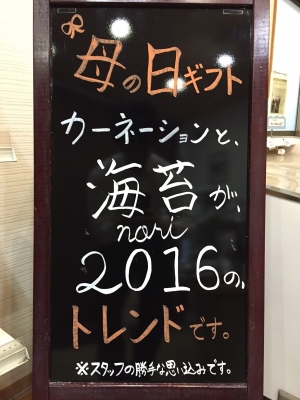 母の日ギフト
カーネーションと、
海苔が、
nori
2016の、
トレンドです。
※スタッフの勝手な思い込みです。